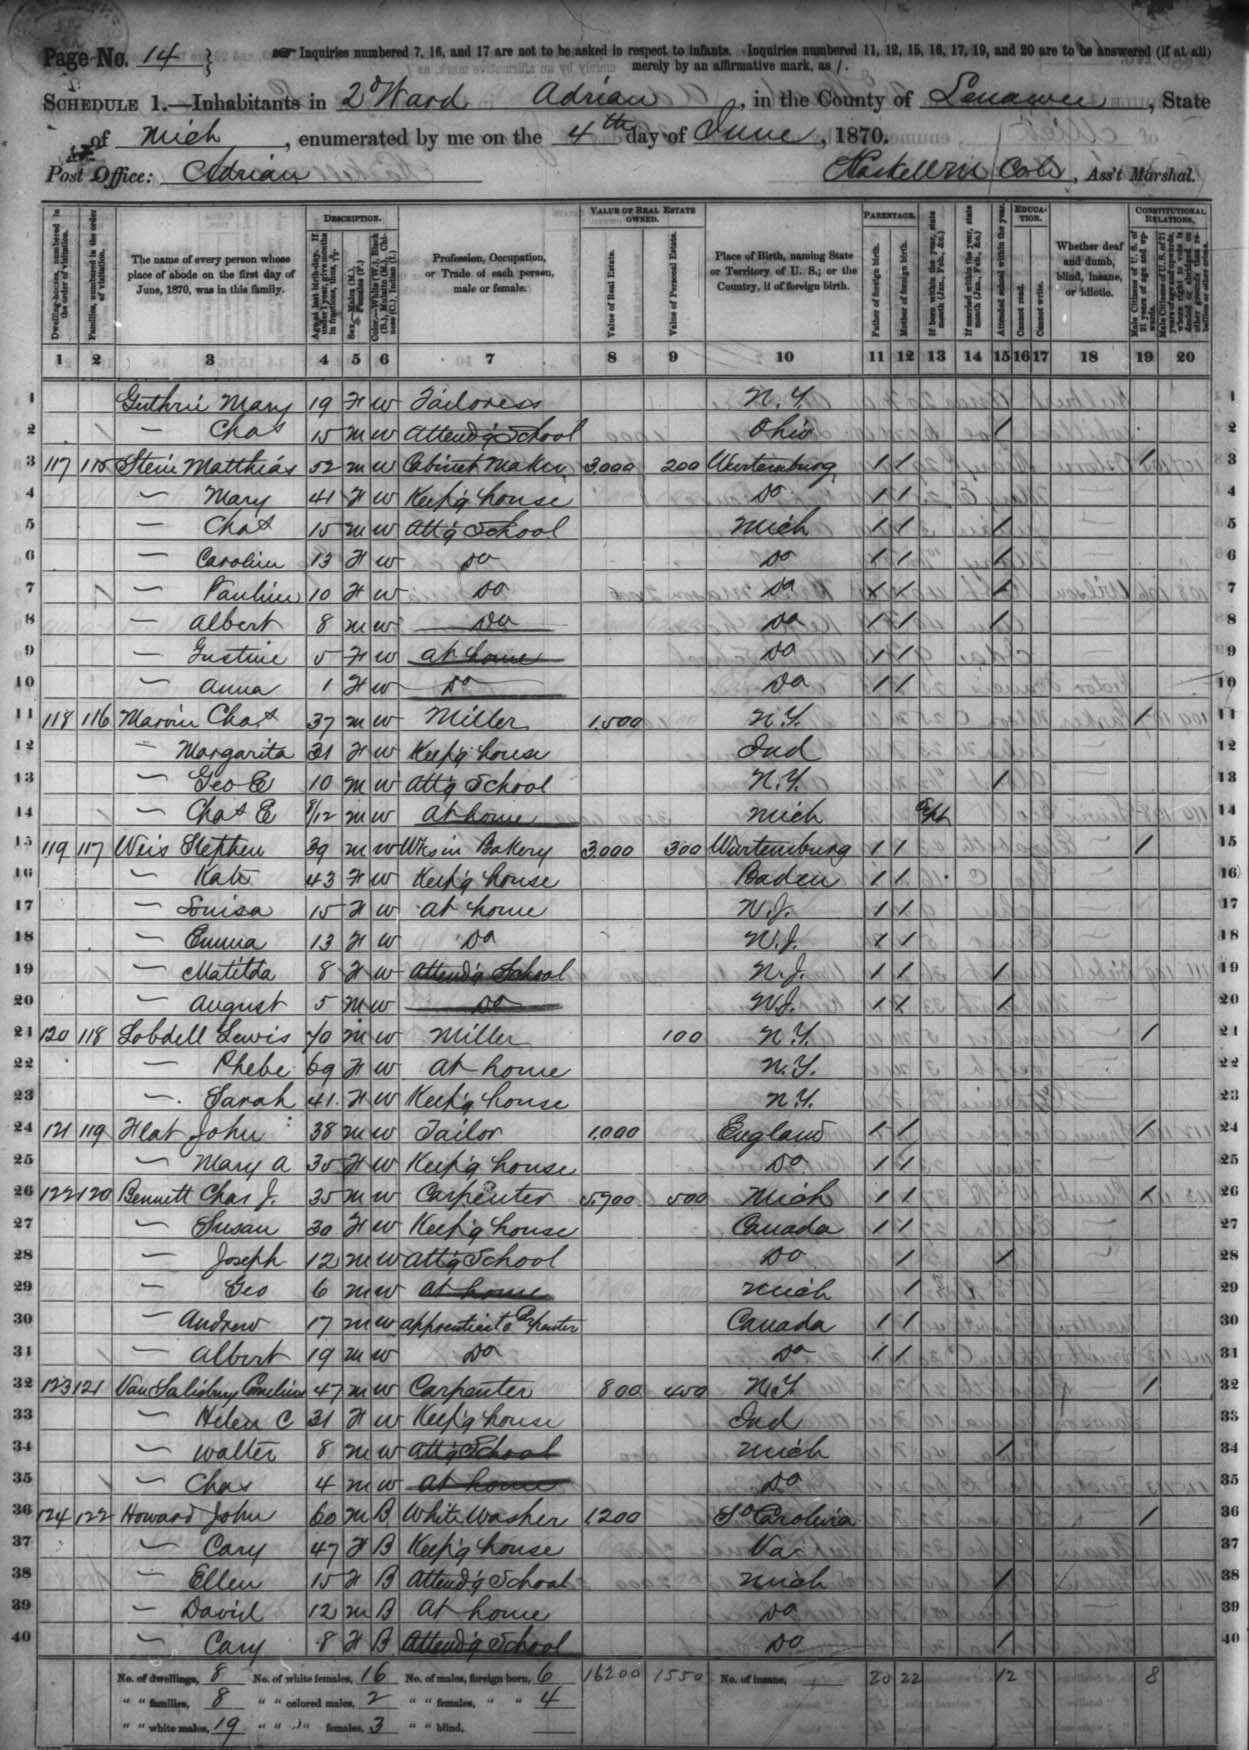 Page No. 14 Inquiries numbered 7, 16, and 17 are not to be asked in respect to infants. Inquiries numbered 11, 12, 15, 16, 17, 19, and 20 are to be answered (if at all)
merely by an affirmative mark, as /.
SCHEDULE 1.—Inhabitants in 2d Ward Adrian, in the County of Lenawee, State
of Mich, enumerated by me on the 4th day of June, 1870.
Post Office: Adrian Ass't Marshal.
Dwelling-houses, numbered in the order of visitation.
Families, numbered in the order of visitation.
The name of every person whose place of abode on the first day of June, 1870, was in this family.
DESCRIPTION.
Age at last birth-day. If under 1 year, give months in fractions, thus, 3/12
Sex.—Males (M.), Females (F.)
Color.—White (W.), Black (B.), Mulatto (M.), Chinese (C.), Indian (I.)
Profession, Occupation, or Trade of each person, male or female.
VALUE OF REAL ESTATE OWNED.
Value of Real Estate.
Value of Personal Estate.
Place of Birth, naming State or Territory of U. S.; or the Country, if of foreign birth.
PARENTAGE.
Father of foreign birth.
Mother of foreign birth.
If born within the year, state month (Jan., Feb., &c.)
If married within the year, state month (Jan., Feb., &c.)
Attended school within the year.
EDUCATION.
Cannot read.
Cannot write.
Whether deaf and dumb, blind, insane, or idiotic.
CONSTITUTIONAL RELATIONS.
Male Citizens of U. S. of 21 years of age and upwards.
Male Citizens of U. S. of 21 years of age and upwards, whose right to vote is denied or abridged on other grounds than rebellion or other crime.
1 2 3 4 5 6 7 8 9 10 11 12 13 14 15 16 17 18 19 20
1 Guthrie Mary 19 F W Tailoress N.Y. 1
2 — Chas 15 M W Attend'g School Ohio / 2
3 117 115 Stein Matthias 52 M W Cabinet Maker 3,000 200 Wurtemburg / / / 3
4 — Mary 41 F W Keep'g house Do / / 4
5 — Chas 15 M W Att'g School Mich / / / 5
6 — Carolin 13 F W Do Do / / / 6
7 — Paulin 10 F W Do Do / / / 7
8 — Albert 8 M W Do Do / / / 8
9 — Gustine 5 F W at home Do / / 9
10 — Anna 1 F W Do Do / / 10
11 118 116 Marvin Chas 37 M W Miller 1,500 N.Y. / 11
12 — Margarita 31 F W Keep'g house Ind 12
13 — Geo E 10 M W Att'g School N.Y. / 13
14 — Chas E 8/12 M W at home Mich Sept 14
15 119 117 Weis Stephen 39 M W Wks in Bakery 3,000 300 Wurtemburg / / / 15
16 — Kate 43 F W Keep'g house Baden / / 16
17 — Louisa 15 F W at home N.J. / / 17
18 — Emma 13 F W Do N.J. / / 18
19 — Matilda 8 F W Attend'g School N.J. / / / 19
20 — August 5 M W Do N.J. / / / 20
21 120 118 Lobdell Lewis 70 M W Miller 100 N.Y. / 21
22 — Phebe 69 F W at home N.Y. 22
23 — Sarah 41 F W Keep'g house N.Y. 23
24 121 119 Flat John 38 M W Tailor 1,000 England / / / 24
25 — Mary A 35 F W Keep'g house Do / / 25
26 122 120 Bennett Chas J. 35 M W Carpenter 5,700 500 Mich / / / 26
27 — Susan 30 F W Keep'g house Canada / / 27
28 — Joseph 12 M W Att'g School Do / / 28
29 — Geo 6 M W at home Mich / 29
30 — Andrew 17 M W apprentice to Carpenter Canada / / 30
31 — Albert 19 M W Do Do / / 31
32 123 121 Van Salisbury Cornelius 47 M W Carpenter 800 450 N.Y. / 32
33 — Helen C 31 F W Keep'g house Ind 33
34 — Walter 8 M W Att'g School Mich / 34
35 — Chas 4 M W at home Do 35
36 124 122 Howard John 60 M B White Washer 1200 So Carolina / 36
37 — Cary 47 F B Keep'g house Va 37
38 — Ellen 15 F B Attend'g School Mich / 38
39 — David 12 M B at home Do 39
40 — Cary 8 F B Attend'g School Do / 40
No. of dwellings, 8 No. of white females, 16 No. of males, foreign born, 6 16200 1550 No. of insane, 20 22 12 8
" " families, 8 " " colored males, 2 " " females, " " 4
" " white males, 19 " " " females, 3 " " blind,